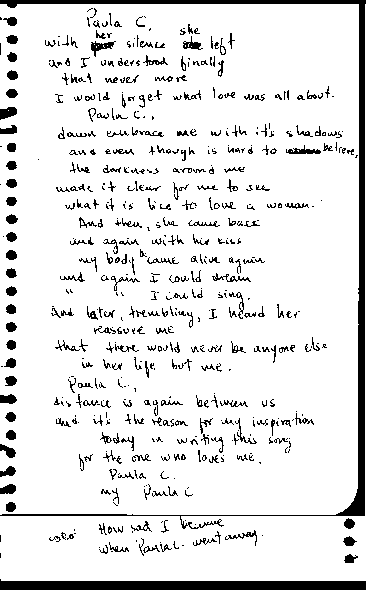 Paula C,
with her silence she left
and I understood finally
that never more
I would forget what love was all about.
Paula C.,
dawn embrace me with it's shadows
and even though is hard to beleive,
the darkness around me
made it clear for me to see
what it is like to love a woman.
And then, she came back
and again with her kiss
my body became alive again
and again I could dream
" " I could sing.
And later, trembling, I heard her
reassure me
that there would never be anyone else
in her life but me.
Paula C.,
distance is again between us
and it's the reason for my inspiration
today in writing this song
for the one who loves me.
Paula C.
my Paula C
coro: How sad I became
when Paula C. went away.